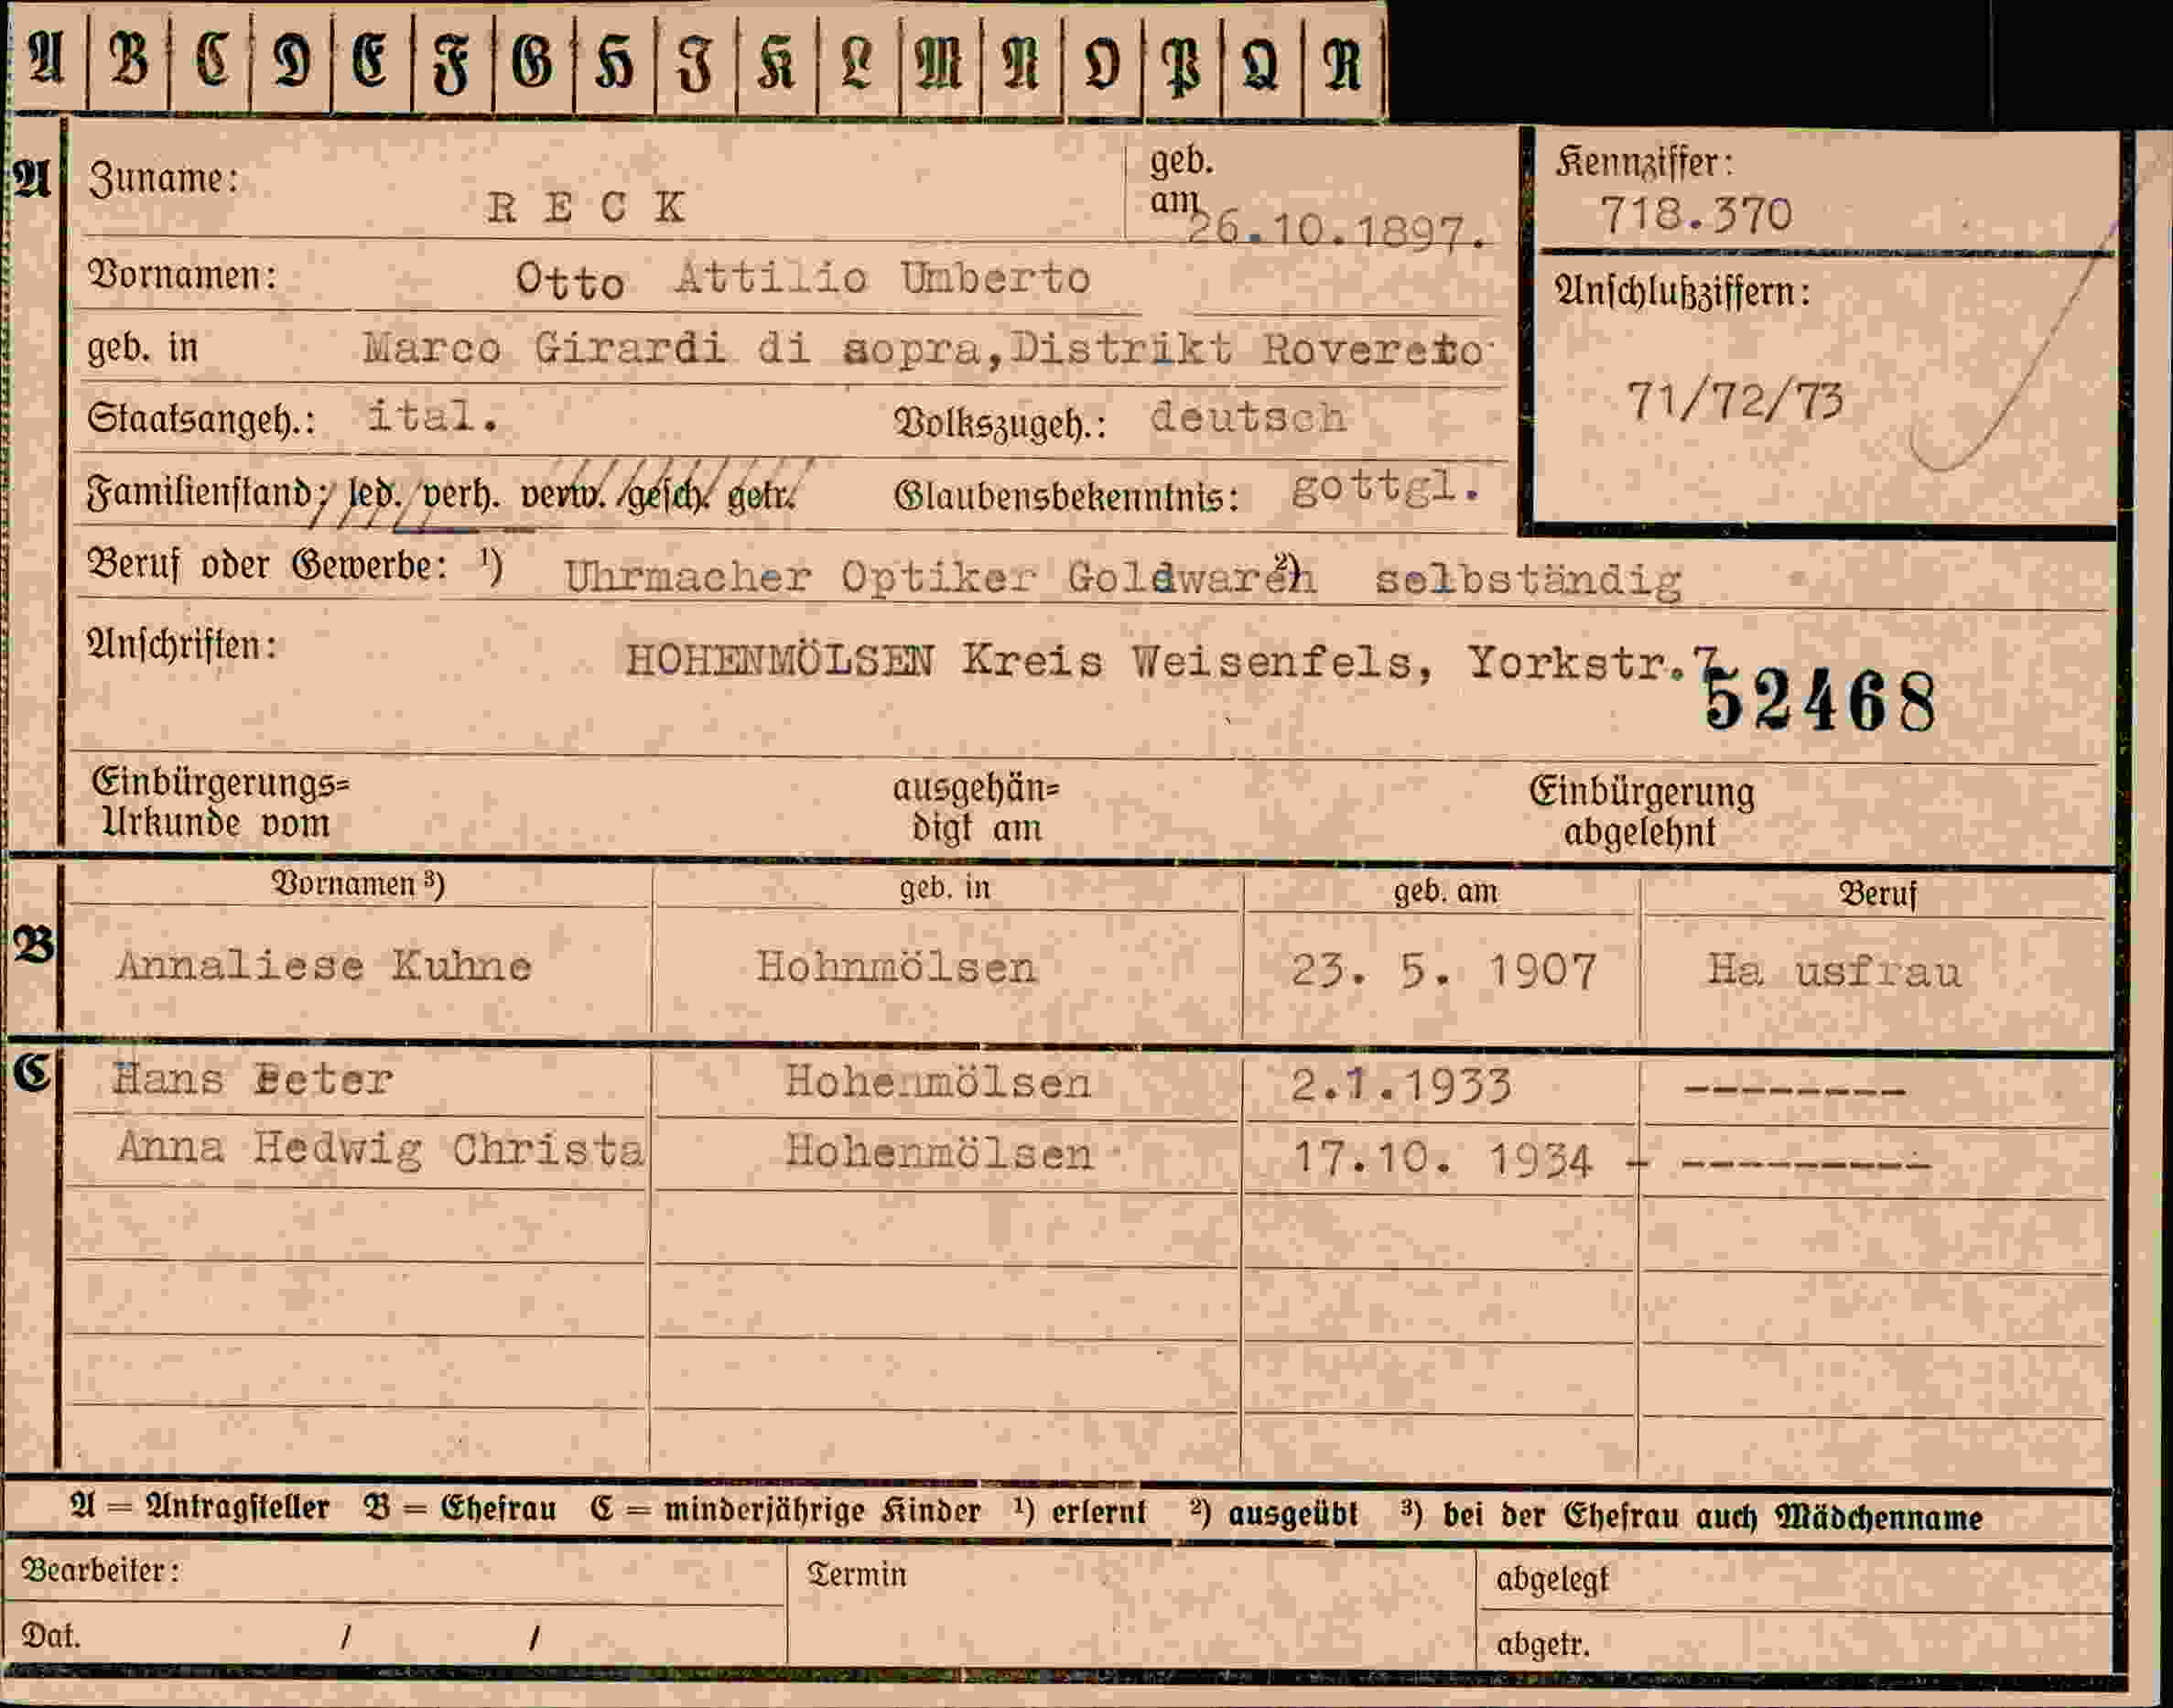 A B C D E F G H J K L M N O P Q R
A Zuname: RECK geb. am 26.10.1897. Kennziffer: 718.370
Vornamen: Otto Attilio Umberto
geb. in Marco Girardi di sopra, Distrikt Rovereto
Anschlußziffern: 71/72/73
Staatsangeh.: ital. Volkszugeh.: deutsch
Familienstand: led. verh. verw. gesch. getr. Glaubensbekenntnis: gottgl.
Beruf oder Gewerbe: ¹) Uhrmacher Optiker Goldwaren ²) selbständig
Anschriften: HOHENMÖLSEN Kreis Weisenfels, Yorkstr.7
52468
Einbürgerungs=
Urkunde vom
ausgehän=
digt am
Einbürgerung
abgelehnt
Vornamen ³) geb. in geb. am Beruf
B Annaliese Kuhne Hohnmölsen 23. 5. 1907 Ha usfrau
C Hans Peter Hohenmölsen 2.1.1933 --------
Anna Hedwig Christa Hohenmölsen 17.10. 1934 - ---------
A = Antragsteller B = Ehefrau C = minderjährige Kinder ¹) erlernt ²) ausgeübt ³) bei der Ehefrau auch Mädchenname
Bearbeiter: Termin abgelegt
Dat. / / abgetr.